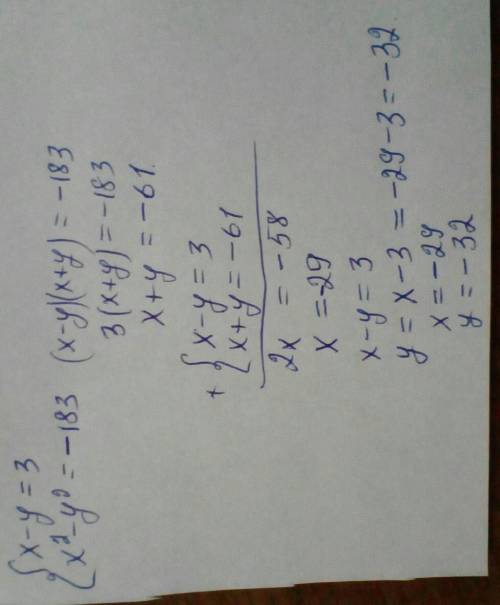 { x-y=3
x²-y²=-183
(x-y)(x+y)=-183
3(x+y)=-183
x+y=-61.
+ { x-y=3
x+y=-61
2x=-58
x=-29
x-y=3
y=x-3=-29-3=-32.
x=-29
y=-32